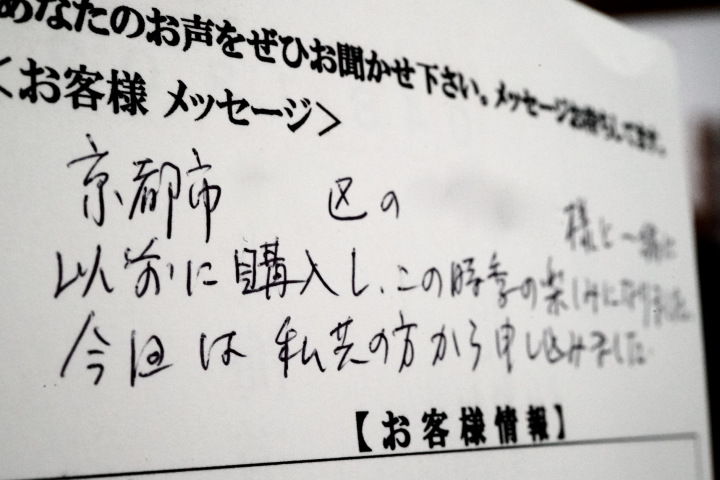 あなたのお声をぜひお聞かせ下さい。メッセージお待ちしてます。
<お客様 メッセージ>
京都市 区の 様と一緒に
以前に購入し、この時季の楽しみになりました
今回は私共の方から申し込みました
【お客様情報】